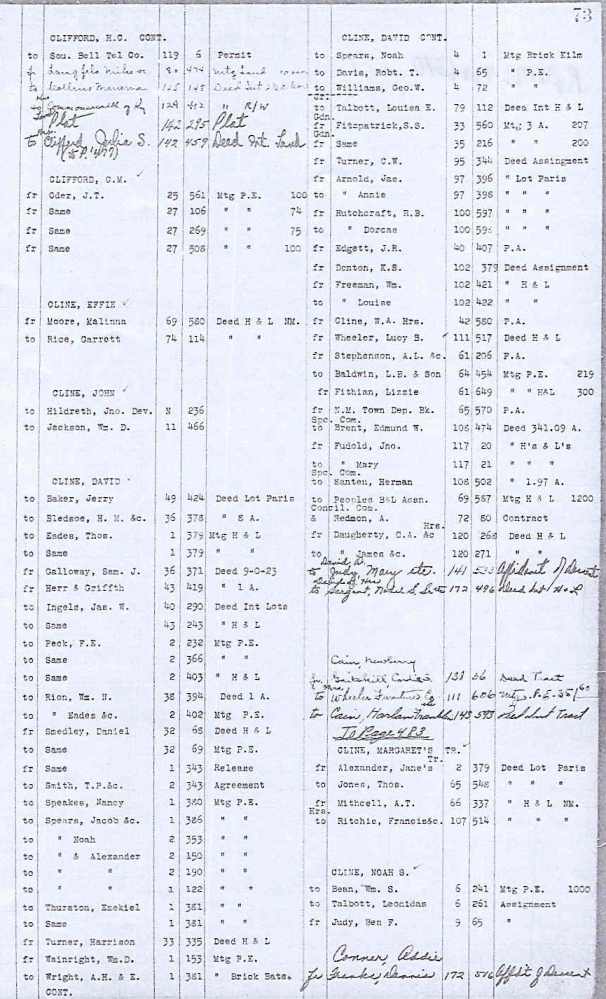 73
CLIFFORD, H.C. CONT.
to Sou. Bell Tel Co. 119 6 Permit
fr 80 474 Mtg Land
to 125 145
to Commonwealth of Ky 129 412 " R/W
Plat 142 295 Plat
to Clifford, Julia S. 142 459 Deed Int Land
CLIFFORD, C.M.
fr Oder, J.T. 25 561 Mtg P.E. 100
fr Same 27 106 " " 74
fr Same 27 269 " " 75
fr Same 27 508 " " 100
CLINE, EFFIE
fr Moore, Malinna 69 580 Deed H & L NM.
to Rice, Garrett 74 114 " "
CLINE, JOHN
to Hildreth, Jno. Dev. N 236
to Jackson, Wm. D. 11 466
CLINE, DAVID
to Baker, Jerry 49 424 Deed Lot Paris
to Bledsoe, H. M. &c. 36 378 " 8 A.
to Eades, Thos. 1 379 Mtg H & L
to Same 1 379 " "
fr Galloway, Sam. J. 36 371 Deed 9-0-23
fr Herr & Griffth 43 419 " 1 A.
to Ingels, Jas. W. 40 290 Deed Int Lots
to Same 43 243 " H & L
to Peck, F.E. 2 232 Mtg P.E.
to Same 2 366 " "
to Same 2 403 " H & L
to Rion, Wm. H. 38 394 Deed 1 A.
to " Eades &c. 2 402 Mtg P.E.
fr Smedley, Daniel 32 68 Deed H & L
to Same 32 69 Mtg P.E.
fr Same 1 343 Release
to Smith, T.P.&c. 2 343 Agreement
to Speakes, Nancy 1 380 Mtg P.E.
to Spears, Jacob &c. 1 386 " "
to " Noah 2 353 " "
to " & Alexander 2 150 " "
to " " 2 190 " "
to " " 1 122 " "
to Thurston, Ezekiel 1 381 " "
to Same 1 381 " "
fr Turner, Harrison 33 335 Deed H & L
fr Wainright, Wm.D. 1 153 Mtg P.E.
to Wright, A.H. & E. 1 381 " Brick Sats.
CONT.
CLINE, DAVID CONT.
to Spears, Noah 4 1 Mtg Brick Kiln
to Davis, Robt. T. 4 65 " P.E.
to Williams, Geo.W. 4 72 " "
to Talbott, Louisa E. 79 112 Deed Int H & L
Gdn.
fr Fitzpatrick,S.S. 33 560 Mtg 3 A. 207
fr Same 35 216 " " 200
fr Turner, C.W. 95 344 Deed Assingment
fr Arnold, Jas. 97 396 " Lot Paris
to " Annie 97 398 " " "
fr Hutchcraft, R.B. 100 597 " " "
to " Dorcas 100 598 " " "
fr Edgett, J.R. 40 407 P.A.
fr Denton, K.S. 102 379 Deed Assignment
fr Freeman, Wm. 102 421 " H & L
to " Louise 102 422 " "
fr Cline, W.A. Hrs. 42 580 P.A.
fr Wheeler, Lucy B. 111 517 Deed H & L
fr Stephenson, A.L. &c. 61 206 P.A.
to Baldwin, L.B. & Son 64 454 Mtg P.E. 219
fr Fithian, Lizzie 61 649 " " H&L 300
fr N.M. Town Dep. Bk. 65 570 P.A.
Spc. Com.
to Brent, Edmund W. 108 474 Deed 341.09 A.
fr Fudold, Jno. 117 20 " H's & L's
to " Mary 117 21 " " "
Spc. Com.
to Hanten, Herman 108 502 " 1.97 A.
to Peoples B&L Assn. 69 587 Mtg H & L 1200
Concil. Com.
& Redmon, A. 72 80 Contract
Hrs.
fr Daugherty, C.A. &c 120 268 Deed H & L
to " James &c. 120 271 " "
to Judy, Mary etc. 141 533 Affidavit of Descent
to Sargent, 172 496 Deed Int H&L
Cain, Newberry
fr 138 56 Deed Tract
to Wheeler Furniture Co 111 606 Mtg P.E.
to Cain, Harlan Franklin 143 593 Deed Int Tract
To Page 483
CLINE, MARGARET'S TR.
Tr.
fr Alexander, Jane's 2 379 Deed Lot Paris
to Jones, Thos. 65 548 " " "
fr Mithcell, A.T. 66 337 " H & L NM.
Hrs.
to Ritchie, Francis&c. 107 514 " " "
CLINE, NOAH S.
to Bean, Wm. S. 6 241 Mtg P.E. 1000
to Talbott, Leonidas 6 261 Assignment
fr Judy, Ben F. 9 65 "
Conner, Addie
fr Franks, Dennis 172 516 Affdt of Descent